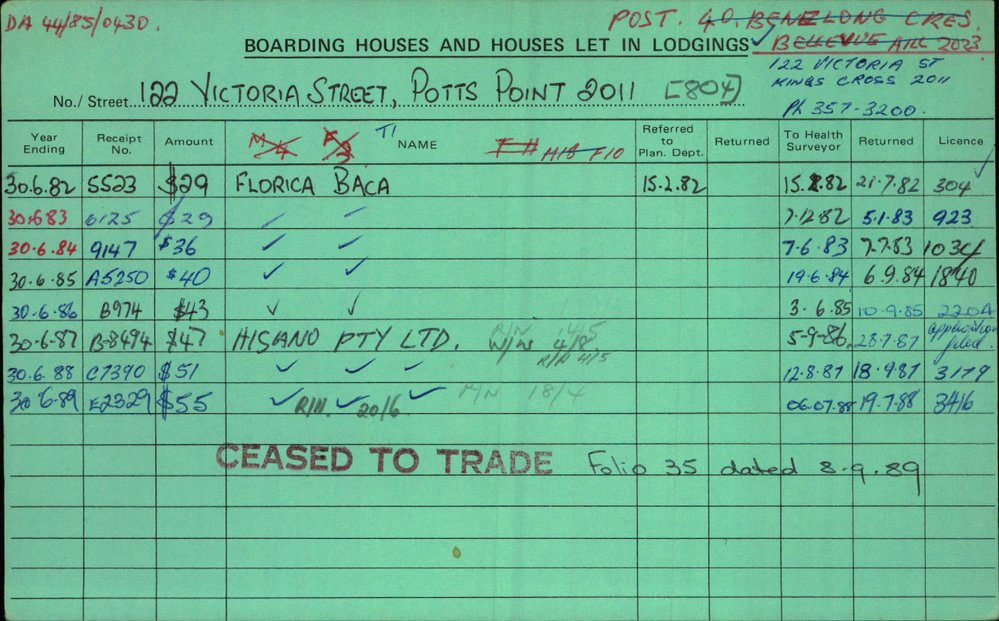 DA 44/85/0430.
POST. 40, BENELONG CRES.
BOARDING HOUSES AND HOUSES LET IN LODGINGS
BELLEVUE HILL 2023
122 VICTORIA ST
KINGS CROSS 2011
No./Street 122 VICTORIA STREET, POTTS POINT 2011 [804]
Ph 357-3200.
Year Ending Receipt No. Amount M4 F3 T1 NAME M18 F10 Referred to Plan. Dept. Returned To Health Surveyor Returned Licence
30.6.82 5523 $29 FLORICA BACA 15.2.82 15.2.82 21.7.82 304 ✓
30.6.83 6125 $29 ✓ ✓ 7-12-82 5.1.83 923
30.6.84 9147 $36 ✓ ✓ 7-6-83 7-7-83 1034
30.6.85 A5250 $40 ✓ ✓ 19.6.84 6.9.84 1840
30.6.86 B974 $43 ✓ ✓ 3.6.85 10.9.85 220A
30.6.87 B-8494 $47 HISANO PTY LTD. R/N 14/5 W/ms 4/8 R/N 4/5 5-9-86 28.7.87 application filed.
30.6.88 C7390 $51 ✓ ✓ ✓ 12.8.87 18.9.87 3179
30.6.89 E2329 $55 ✓ R/N. ✓ 20/6 ✓ M/N 18/4 06.07.88 19.7.88 3416
CEASED TO TRADE Folio 35 dated 8.9.89